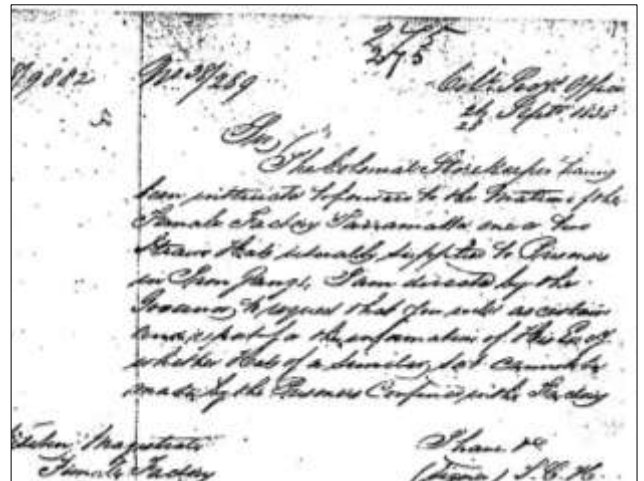 245
275
38/9882 No 38/269 Col. Secy. Office
Sept. 1838
Sir,
The Colonial Storekeeper having
been instructed to forward to the Matron of the
Female Factory Parramatta one or two
Straw Hats usually supplied to Prisoners
in Iron Gangs, I am directed by the
Governor to request that you will ascertain
and report for the information of His Excy
whether Hats of a similar sort cannot be
made by the Prisoners Confined in the Factory
Magistrate I have &c
Female Factory (Signed)